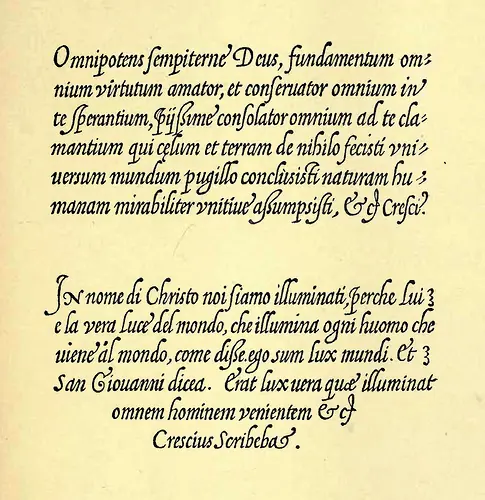 Omnipotens sempiterne Deus, fundamentum om-
nium virtutum amator, et conseruator omnium in
te sperantium, pijssime consolator omnium ad te cla-
mantium qui cęlum et terram de nihilo fecisti vni-
uersum mundum pugillo conclusisti naturam hu-
manam mirabiliter vnitiue assumpsisti, &c Cresci.
IN nome di Christo noi siamo illuminati, perche lui
e la vera luce del mondo, che illumina ogni huomo che
uiene al mondo, come disse. ego sum lux mundi. Et
San Giouanni dicea. Erat lux uera quæ illuminat
omnem hominem venientem &c
Crescius Scribeba&.